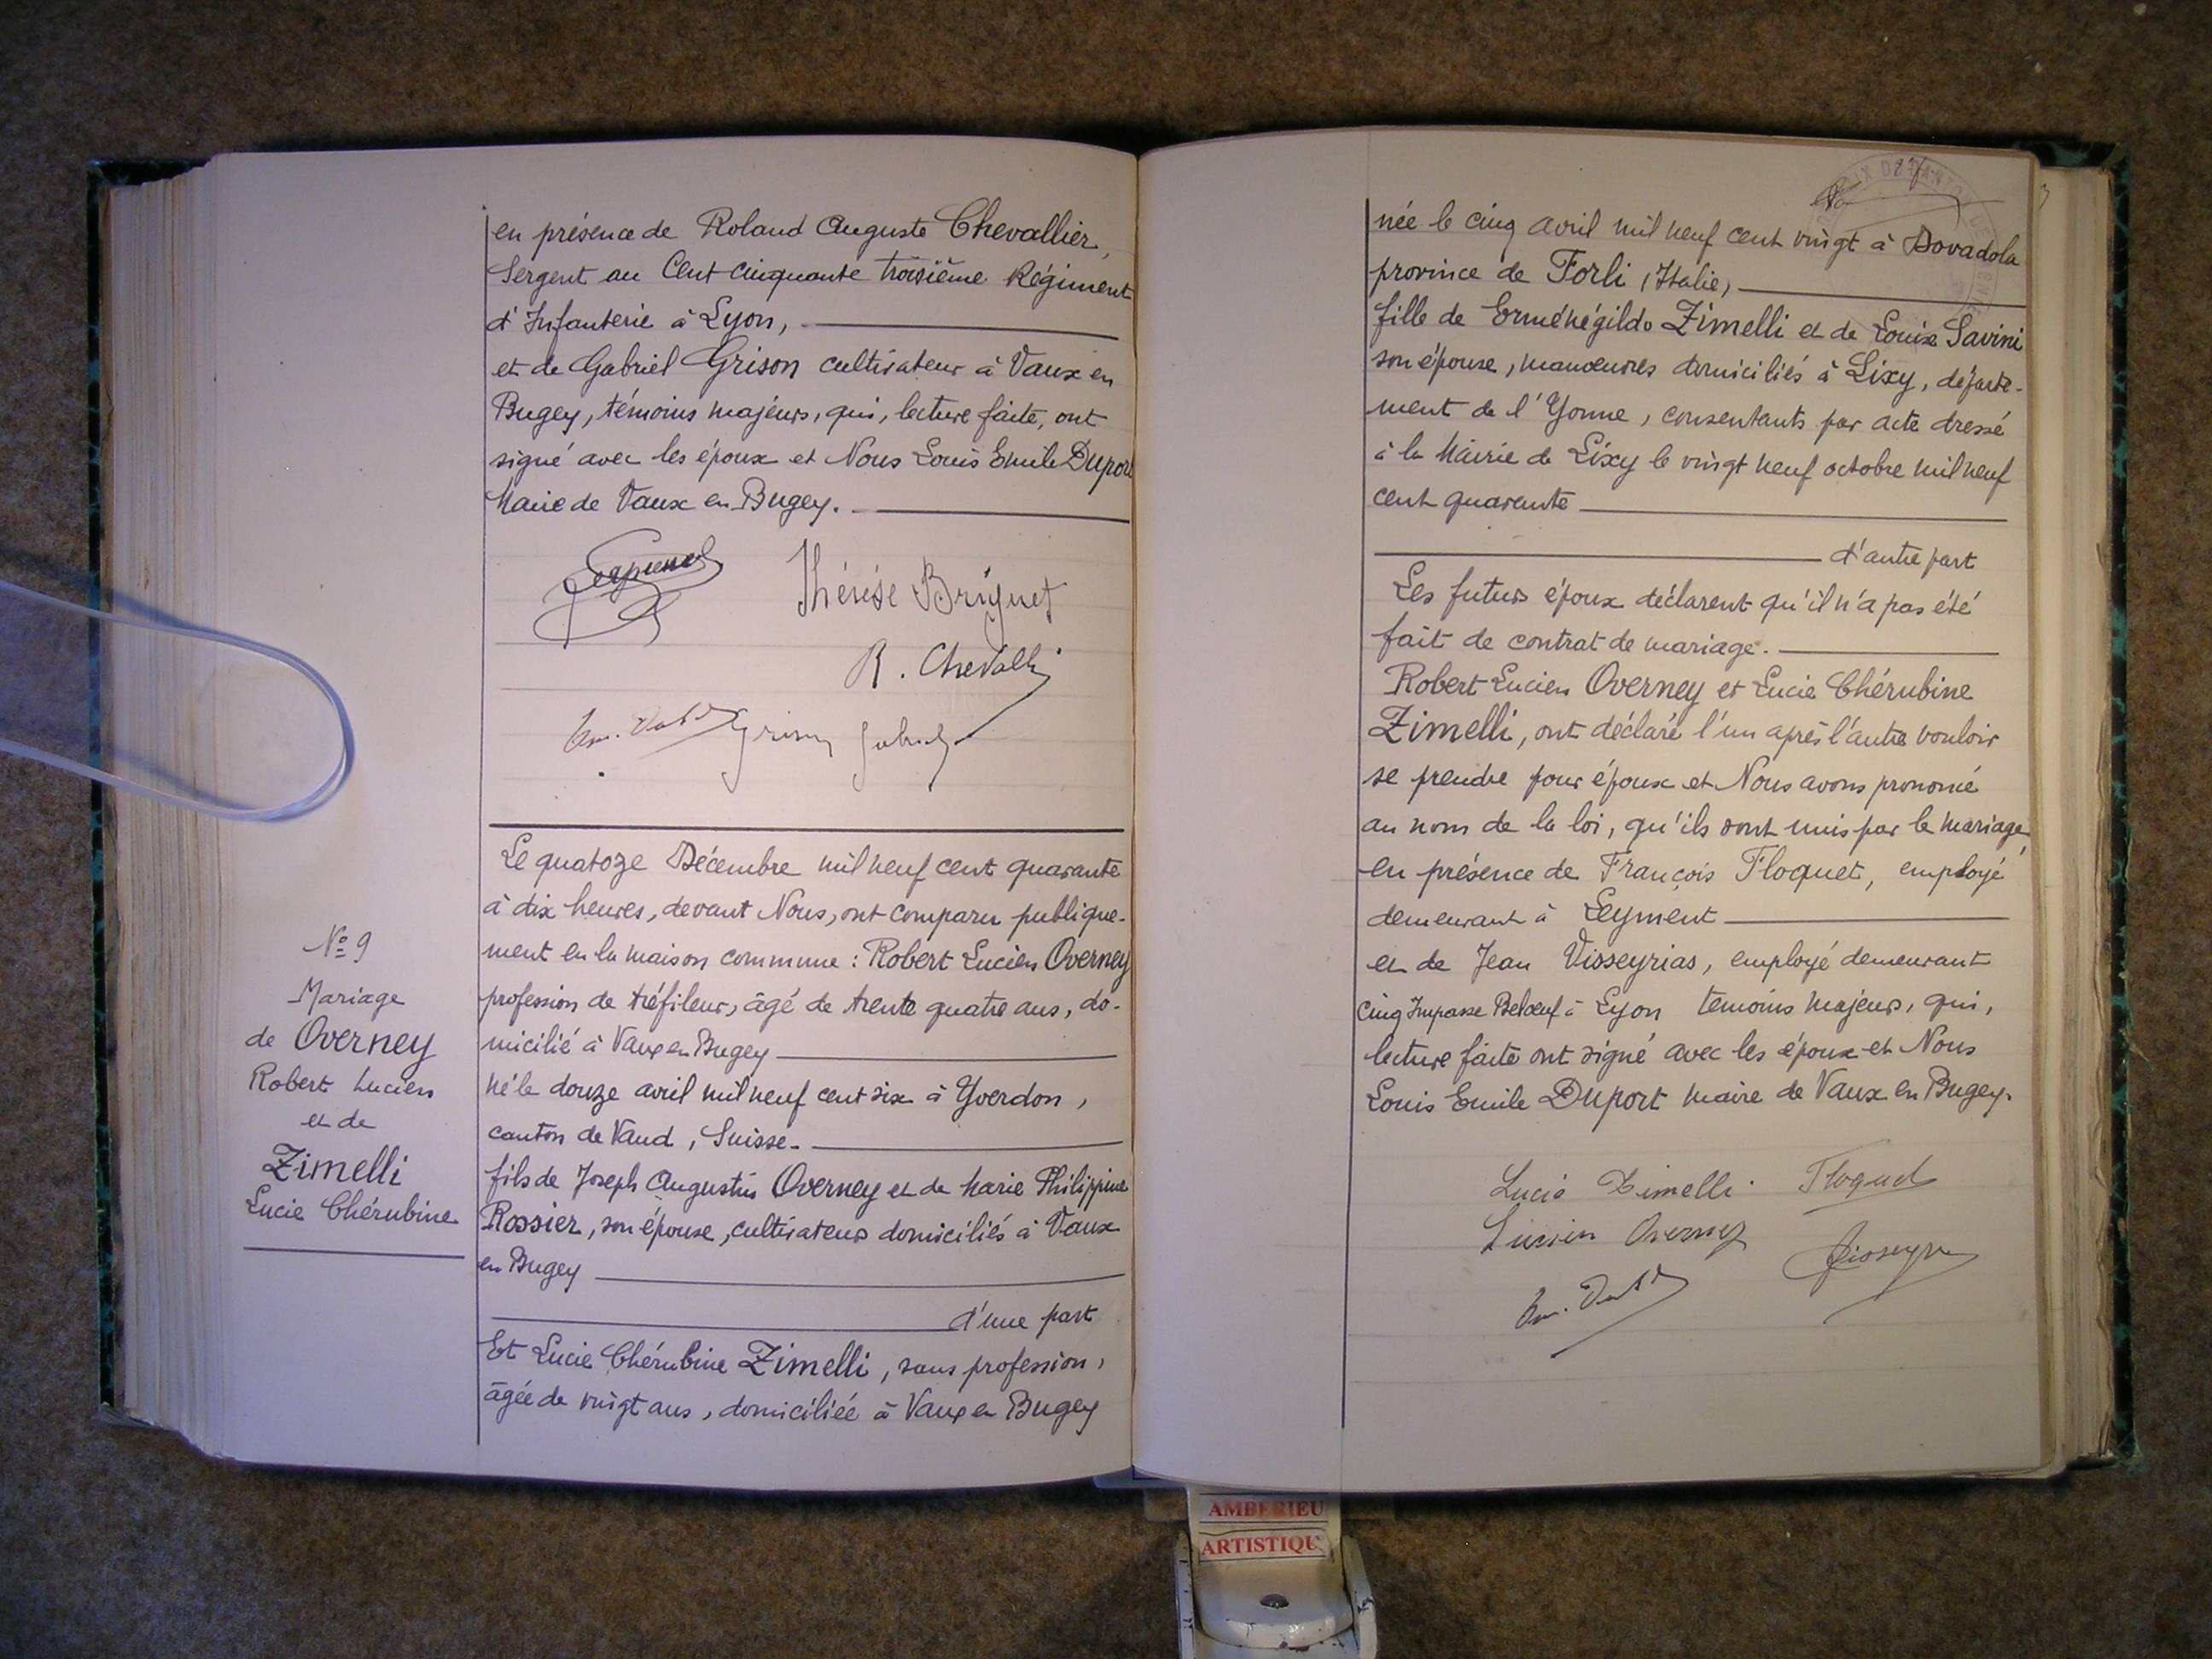 en présence de Roland Auguste Chevallier,
Sergent au Cent cinquante troisième Régiment
d'Infanterie à Lyon,
et de Gabriel Grison cultivateur à Vaux en
Bugey, témoins majeurs, qui, lecture faite, ont
signé avec les époux et Nous Louis Emile Duport
Maire de Vaux en Bugey.
Thérèse Briguet
R. Chevalli
Grison Gabriel
Le quatoze Décembre mil neuf cent quarante
à dix heures, devant Nous, ont comparu publique-
ment en la maison commune : Robert Lucien Overney
profession de tréfileur, âgé de trente quatre ans, do-
micilié à Vaux en Bugey
né le douze avril mil neuf cent six à Yverdon,
canton de Vaud, Suisse.
fils de Joseph Augustin Overney et de Marie Philippine
Rossier, son épouse, cultivateurs domiciliés à Vaux
en Bugey
d'une part
Et Lucie Chérubine Zimelli, sans profession,
âgée de vingt ans, domiciliée à Vaux en Bugey
N° 9
Mariage
de Overney
Robert Lucien
et de
Zimelli
Lucie Chérubine
née le cinq avril mil neuf cent vingt à Dovadola
province de Forli (Italie)
fille de Erménégildo Zimelli et de Louise Savini
son épouse, manœuvres domiciliés à Lixy, départe-
ment de l'Yonne, consentants par acte dressé
à la Mairie de Lixy le vingt neuf octobre mil neuf
cent quarante
d'autre part
Les futurs époux déclarent qu'il n'a pas été
fait de contrat de mariage.
Robert Lucien Overney et Lucie Chérubine
Zimelli, ont déclaré l'un après l'autre vouloir
se prendre pour époux et Nous avons prononcé
au nom de la loi, qu'ils sont unis par le mariage,
en présence de François Floquet, employé
demeurant à Leyment
et de Jean Visseyrias, employé demeurant
cinq Impasse à Lyon témoins majeurs, qui,
lecture faite ont signé avec les époux et Nous
Louis Emile Duport Maire de Vaux en Bugey.
Lucie Zimelli Floquet
Lucien Overney
AMBERIEU
ARTISTIQU